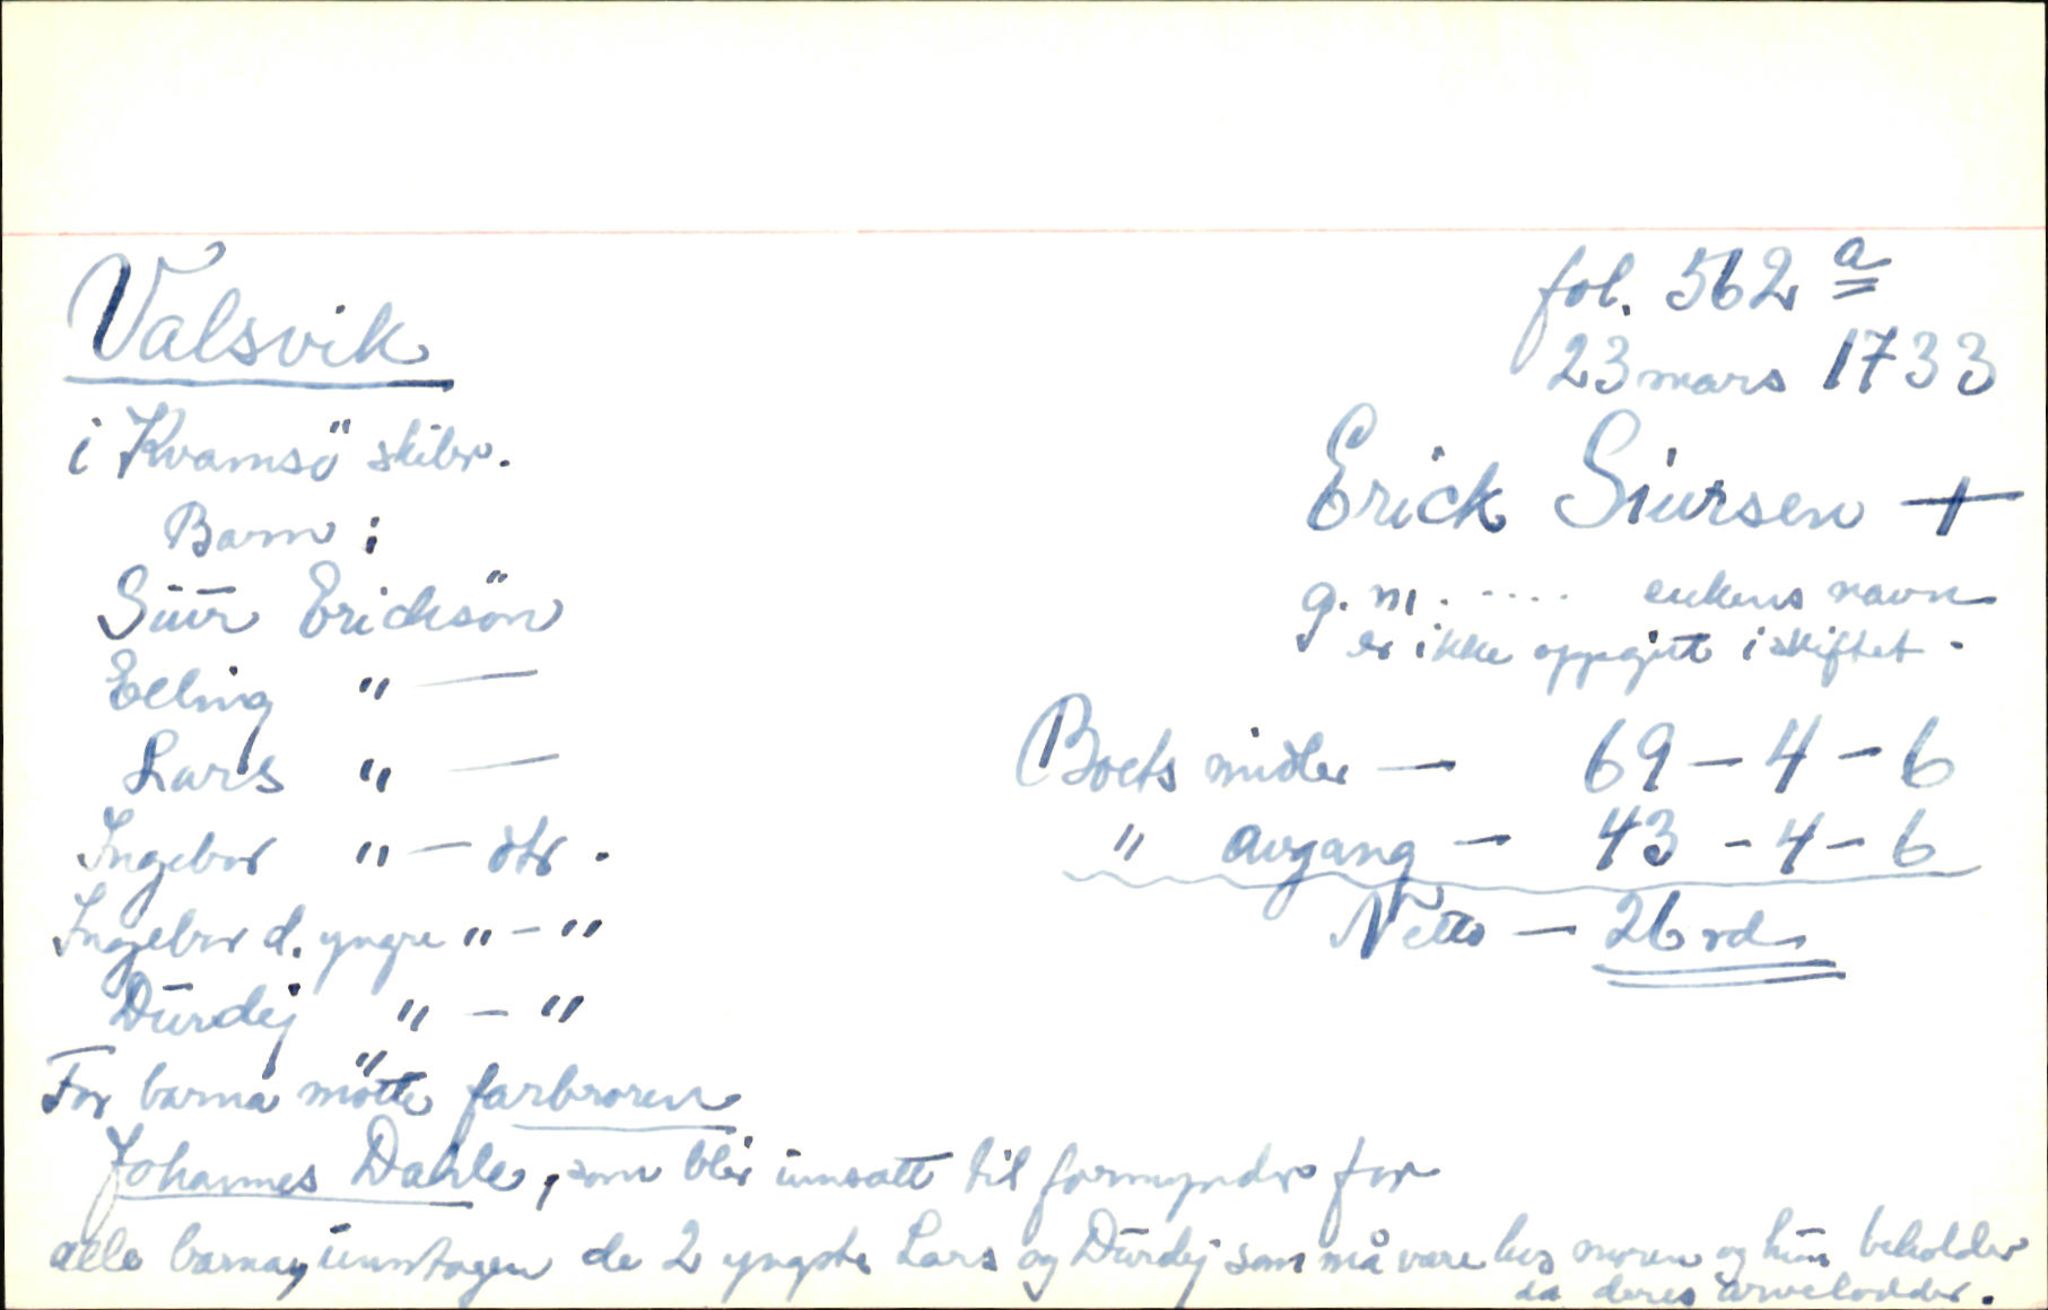 Valsvik
fol. 562 a
23 mars 1733
i Kvamsö skibr.
Erick Siursen +
Barn :
g. m. .... enkens navn
er ikke oppgitt i skiftet.
Siur Ericksön
Elling " —
Lars " —
Ingebor " — dtr.
Ingebor d. yngre " — "
Durdej " — "
Boets midler — 69 — 4 — 6
" avgang — 43 — 4 — 6
Netto — 26 rd
For barna mötte farbroren
Johannes Dahle, som blir innsatt til formynder for
alle barna, unntagen de 2 yngste Lars og Durdej som må være hos moren og hun beholder
da deres arvelodder.